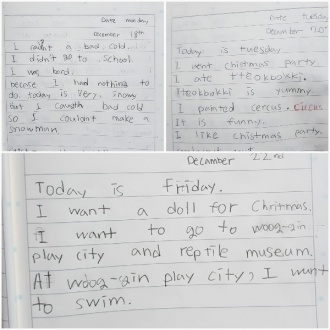 Date monday,
December 18th
I caught a bad cold.
I didn't go to school.
I was bord.
becose I had nothing to
do. today is very snowy
But I caugth bad cold
so I couldnt make a
snowman.
Date Tuesday
December
Today is tuesday.
I went chistmas party.
I ate tteokbokki.
tteokbokki is yummy
I painted cercus. Circus
It is funny.
I like chistmas party.
December 22nd
Today is Friday.
I want a doll for Chritmas.
I want to go to woog-zin
play city and reptile museum.
At woog-zin play city, I want
to swim.